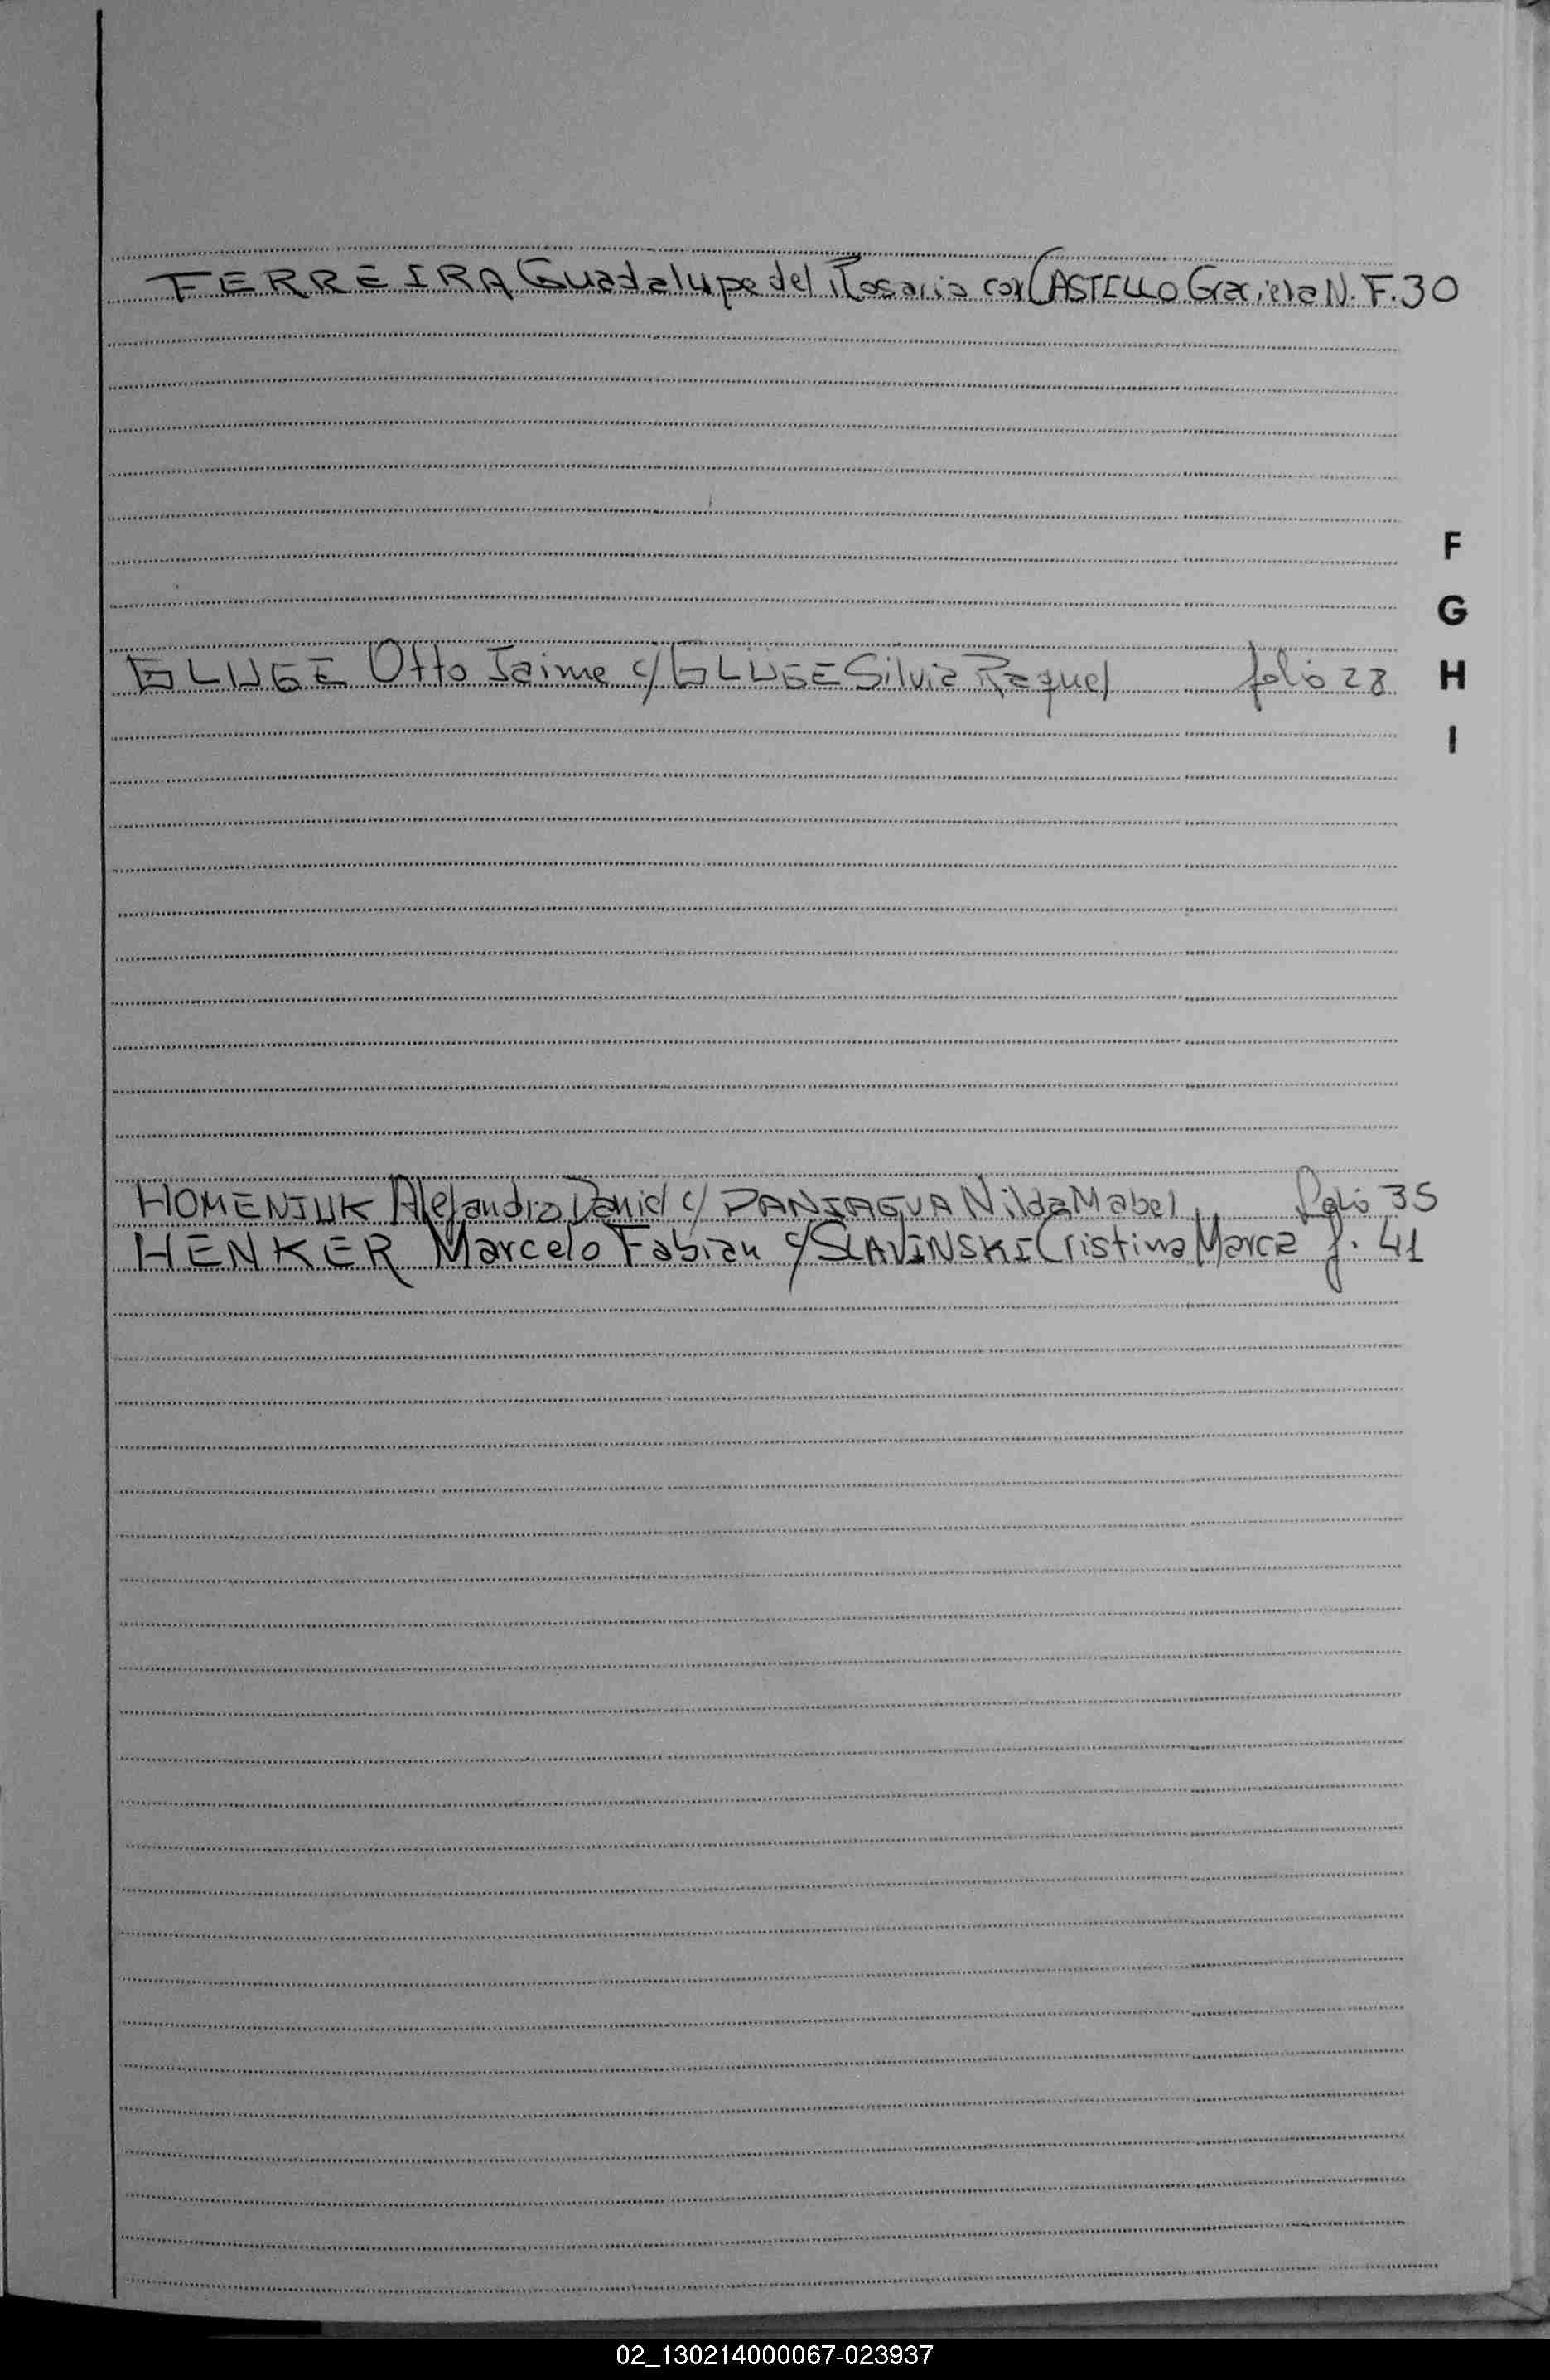 FERREIRA Guadalupe del Rosario con CASTILLO Graciela N. F.30
F
G
GLUGE Otto Jaime c/ GLUGE Silvia Raquel folio 28
H
I
HOMENIUK Alejandro Daniel c/ PANIAGUA Nilda Mabel folio 35
HENKER Marcelo Fabian c/ SLAVINSKI Cristina Marca f. 41
02_130214000067-023937